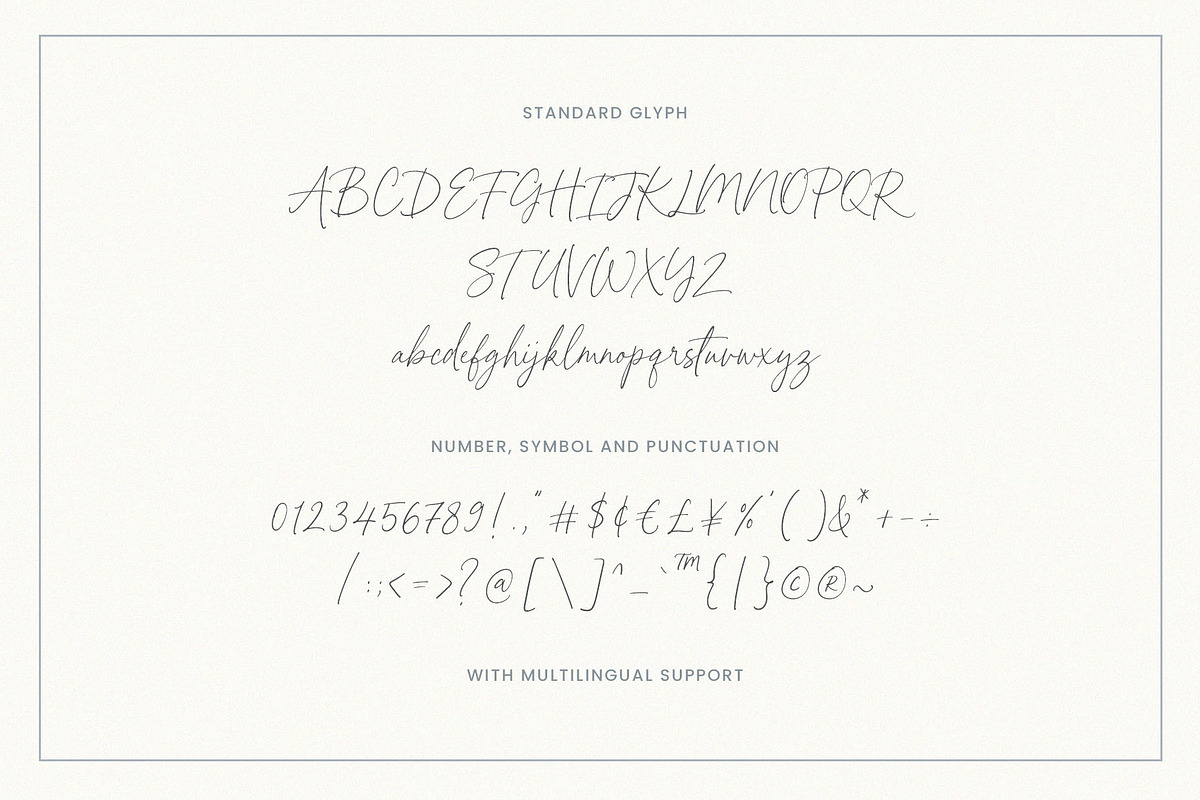 STANDARD GLYPH
ABCDEFGHIJKLMNOPQR
STUVWXYZ
abcdefghijklmnopqrstuvwxyz
NUMBER, SYMBOL AND PUNCTUATION
0123456789!.,"#$¢€£¥%'()&*+-÷
/:;<=>?@[\]^_`™{|}©®~
WITH MULTILINGUAL SUPPORT